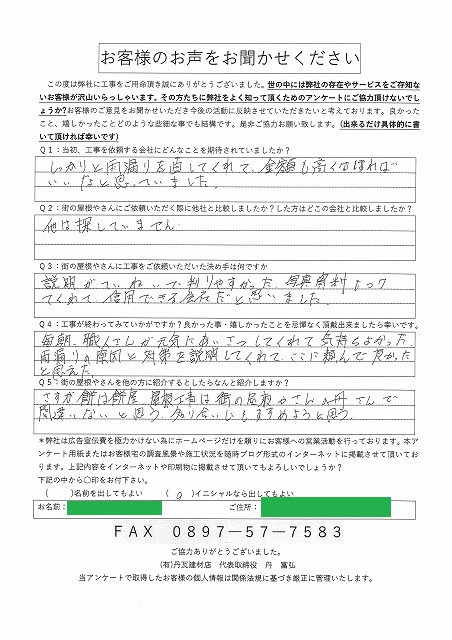 お客様のお声をお聞かせください
この度は弊社に工事をご用命頂き誠にありがとうございました。世の中には弊社の存在やサービスをご存知な
いお客様が沢山いらっしゃいます。その方たちに弊社をよく知って頂くためのアンケートにご協力頂けないでし
ょうか?お客様のご意見をお聞かせいただき今後の活動に反映させていただきたいと考えております。良かった
こと、嬉しかったことどのような些細な事でも結構です。是非ご協力お願い致します。(出来るだけ具体的に書
いて頂ければ幸いです)
Q1:当初、工事を依頼する会社にどんなことを期待されていましたか?
しっかりと雨漏りを直してくれて、金額も高くなければ
いいなと思っていました。
Q2:街の屋根やさんにご依頼いただく際に他社と比較しましたか?した方はどこの会社と比較しましたか?
他は探していません
Q3:街の屋根やさんに工事をご依頼いただいた決め手は何ですか
説明がていねいで判りやすかった。写真資料もつけ
てくれて、信用できる会社だと思いました。
Q4:工事が終わってみていかがですか?良かった事・嬉しかったことを忌憚なく頂戴出来ましたら幸いです。
毎朝、職人さんが元気にあいさつしてくれて気持ちよかった。
雨漏りの原因と対策を説明してくれて、ここに頼んで良かった
と思えた。
Q5:街の屋根やさんを他の方に紹介するとしたらなんと紹介しますか?
さすが餅は餅屋、屋根工事は街の屋根やさんの丹さんで
間違いないと思う。知り合いにもすすめようと思う。
*弊社は広告宣伝費を極力かけない為にホームページだけを頼りにお客様への営業活動を行っております。本ア
ンケート用紙またはお客様宅の調査風景や施工状況を随時ブログ形式のインターネットに掲載させて頂いてお
ります。上記内容をインターネットや印刷物に掲載させて頂いてもよろしいでしょうか?
下記の中から〇印をお付下さい。
( )名前を出してもよい (○)イニシャルなら出してもよい
お名前: ご住所:
FAX 0897-57-7583
ご協力ありがとうございました。
(有)丹瓦建材店 代表取締役 丹 富弘
当アンケートで取得したお客様の個人情報は関係法規に基づき厳正に管理いたします。